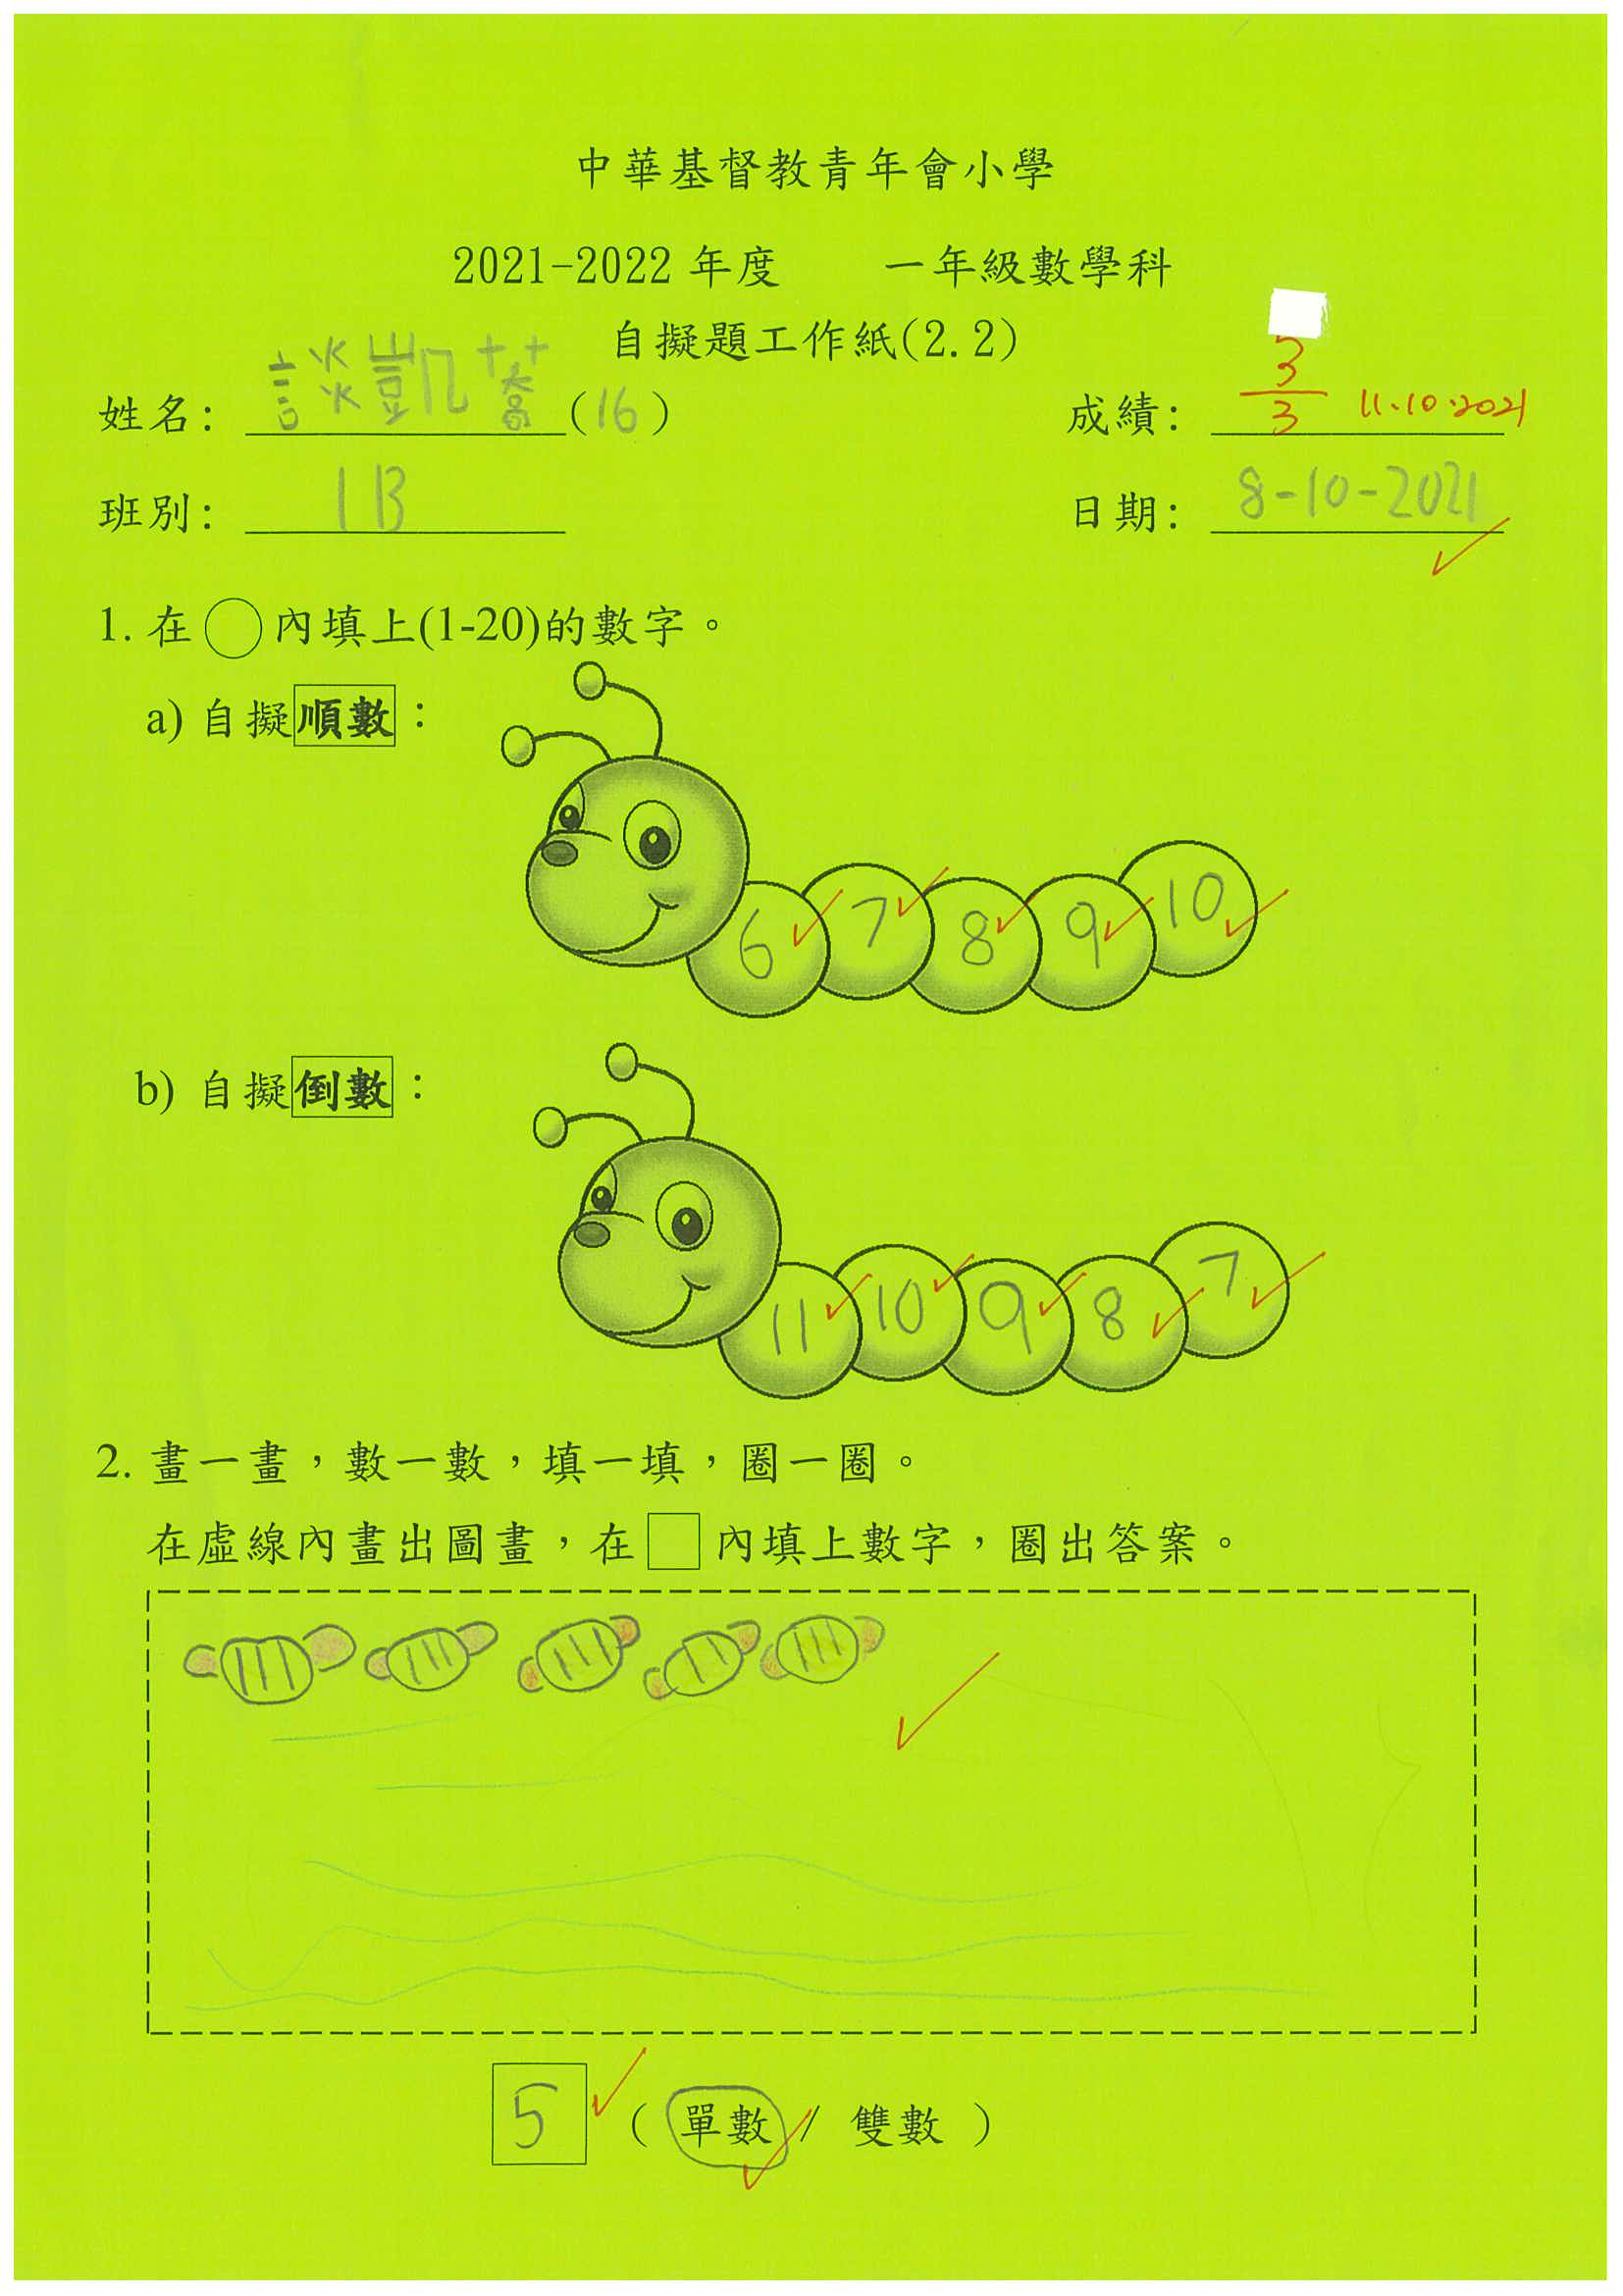 中華基督教青年會小學
2021-2022 年度 一年級數學科
自擬題工作紙(2.2)
姓名: 談凱蕎 (16) 成績: 3/3 11.10.2021
班別: 1B 日期: 8-10-2021
1. 在○內填上(1-20)的數字。
a) 自擬順數：
6 7 8 9 10
b) 自擬倒數：
11 10 9 8 7
2. 畫一畫，數一數，填一填，圈一圈。
在虛線內畫出圖畫，在□內填上數字，圈出答案。
5 ( 單數 / 雙數 )